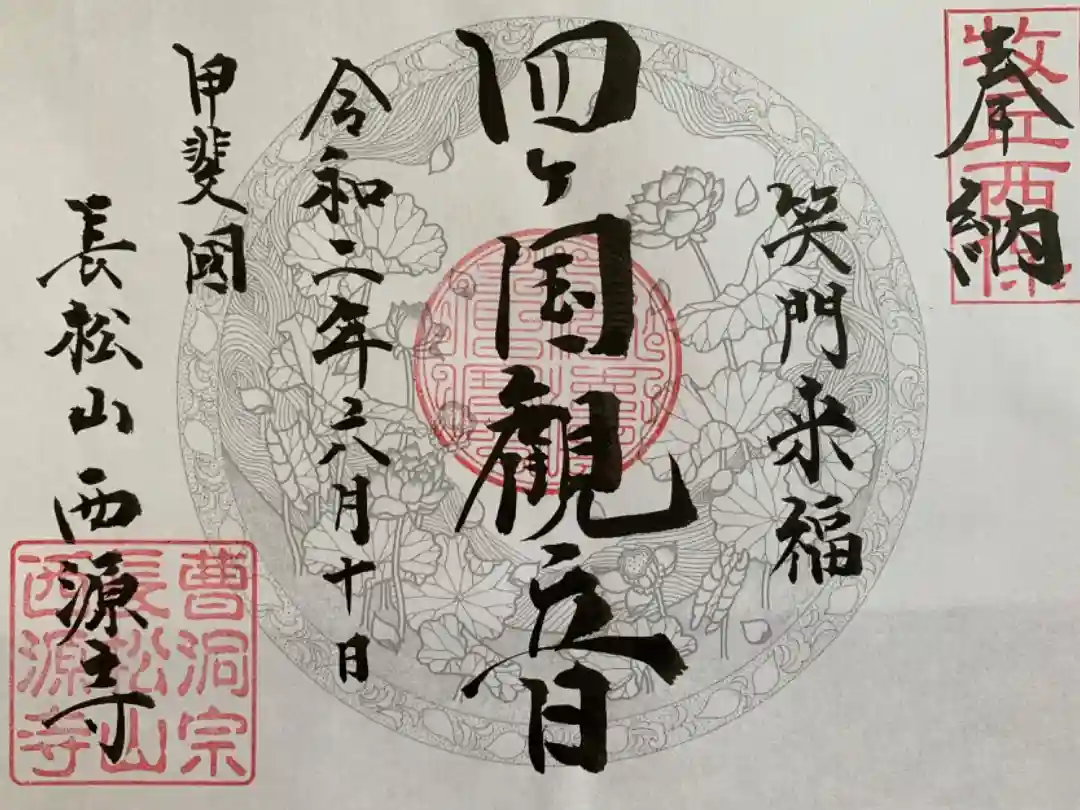 奉納
牧丘西保
笑門来福
四ヶ国観音
令和二年六月十日
甲斐國
長松山西源寺
曹洞宗
長松山
西源寺